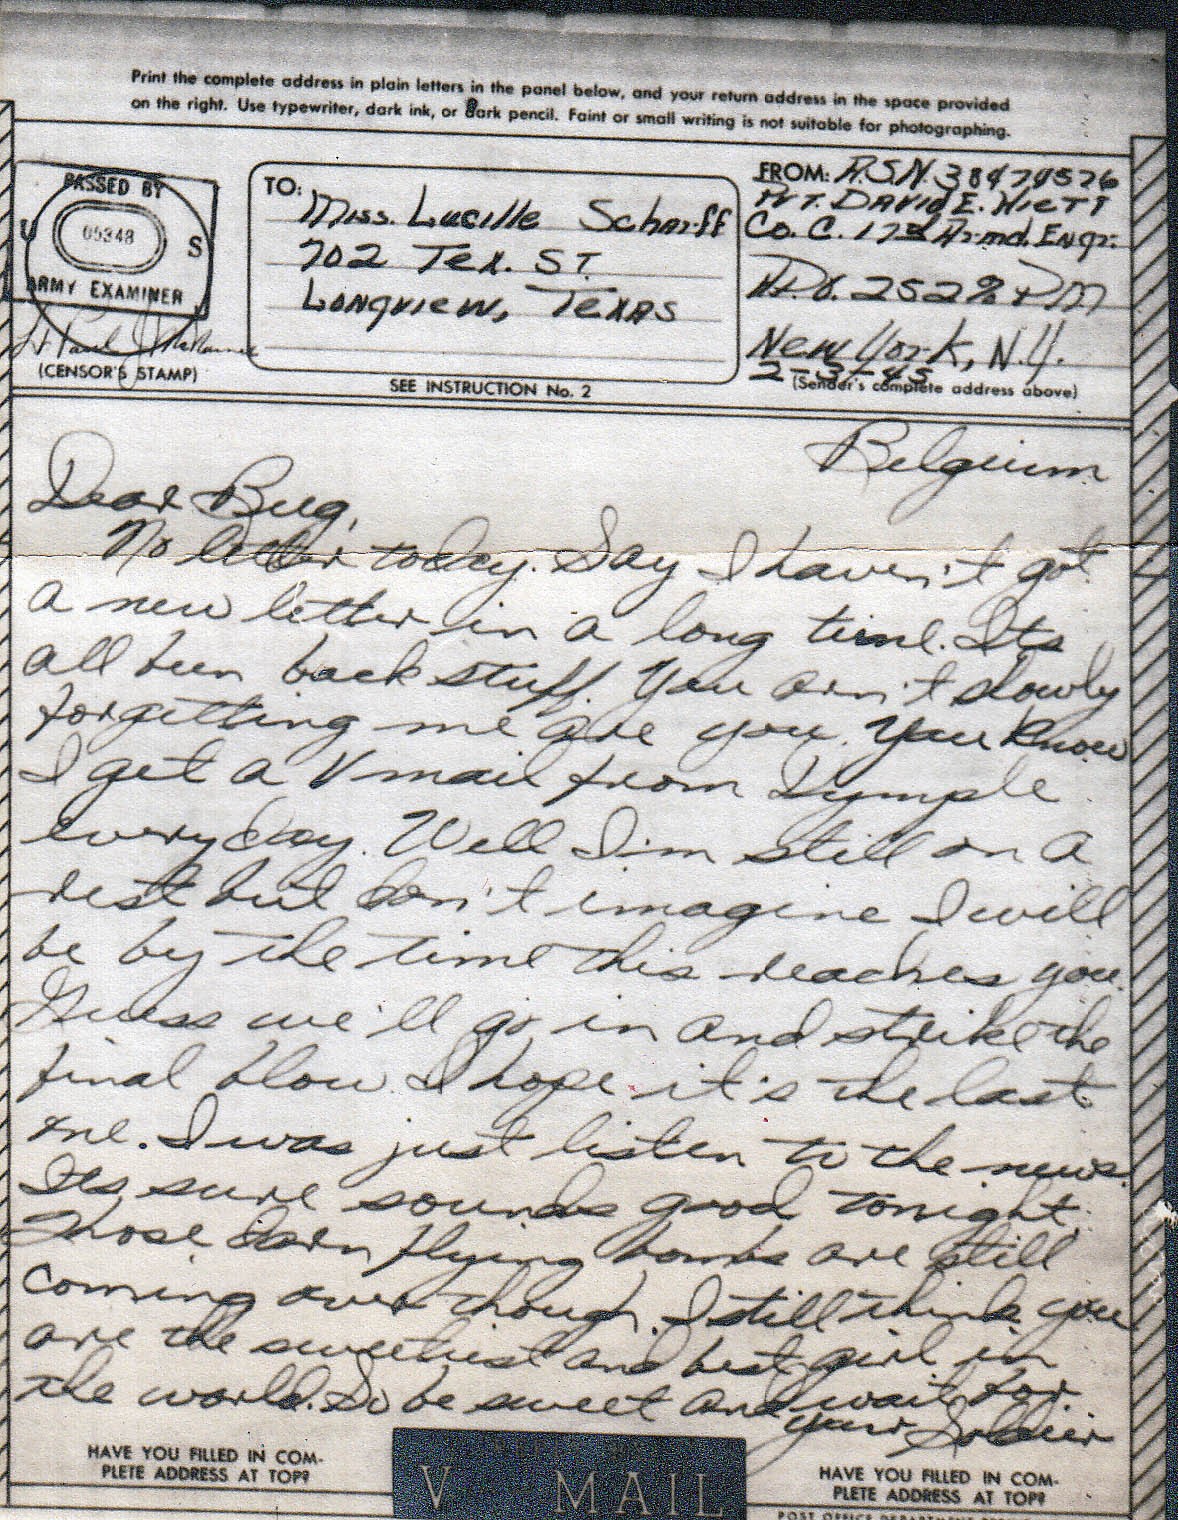 Print the complete address in plain letters in the panel below, and your return address in the space provided
on the right. Use typewriter, dark ink, or dark pencil. Faint or small writing is not suitable for photographing.
PASSED BY
U 05348 S
ARMY EXAMINER
Lt Paul
(CENSOR'S STAMP)
TO:
Miss. Lucille Scharff
702 Tex. ST.
Longview, Texas
SEE INSTRUCTION No. 2
FROM: A.S.N. 38474576
Pvt. David E. Hiett
Co. C. 17th Armd. Engr.
A.P.O. 252 % PM
New York, N.Y.
2-3-45
(Sender's complete address above)
Belgium
Dear Bug,
No letter today. Say I haven't got
a new letter in a long time. Its
all been back stuff. You arn't slowly
forgetting me are you. You know
I get a V mail from Dymple
every day. Well I'm still on a
rest but don't imagine I will
be by the time this reaches you.
Guess we'll go in and strike the
final blow. I hope it's the last
one. I was just listen to the news.
Its sure sounds good tonight.
Those darn flying bombs are still
coming over though. I still think you
are the sweetiest and best girl in
the world. So be sweet and wait for
your Soldier
HAVE YOU FILLED IN COM-
PLETE ADDRESS AT TOP?
V MAIL
HAVE YOU FILLED IN COM-
PLETE ADDRESS AT TOP?
POST OFFICE DEPARTMENT